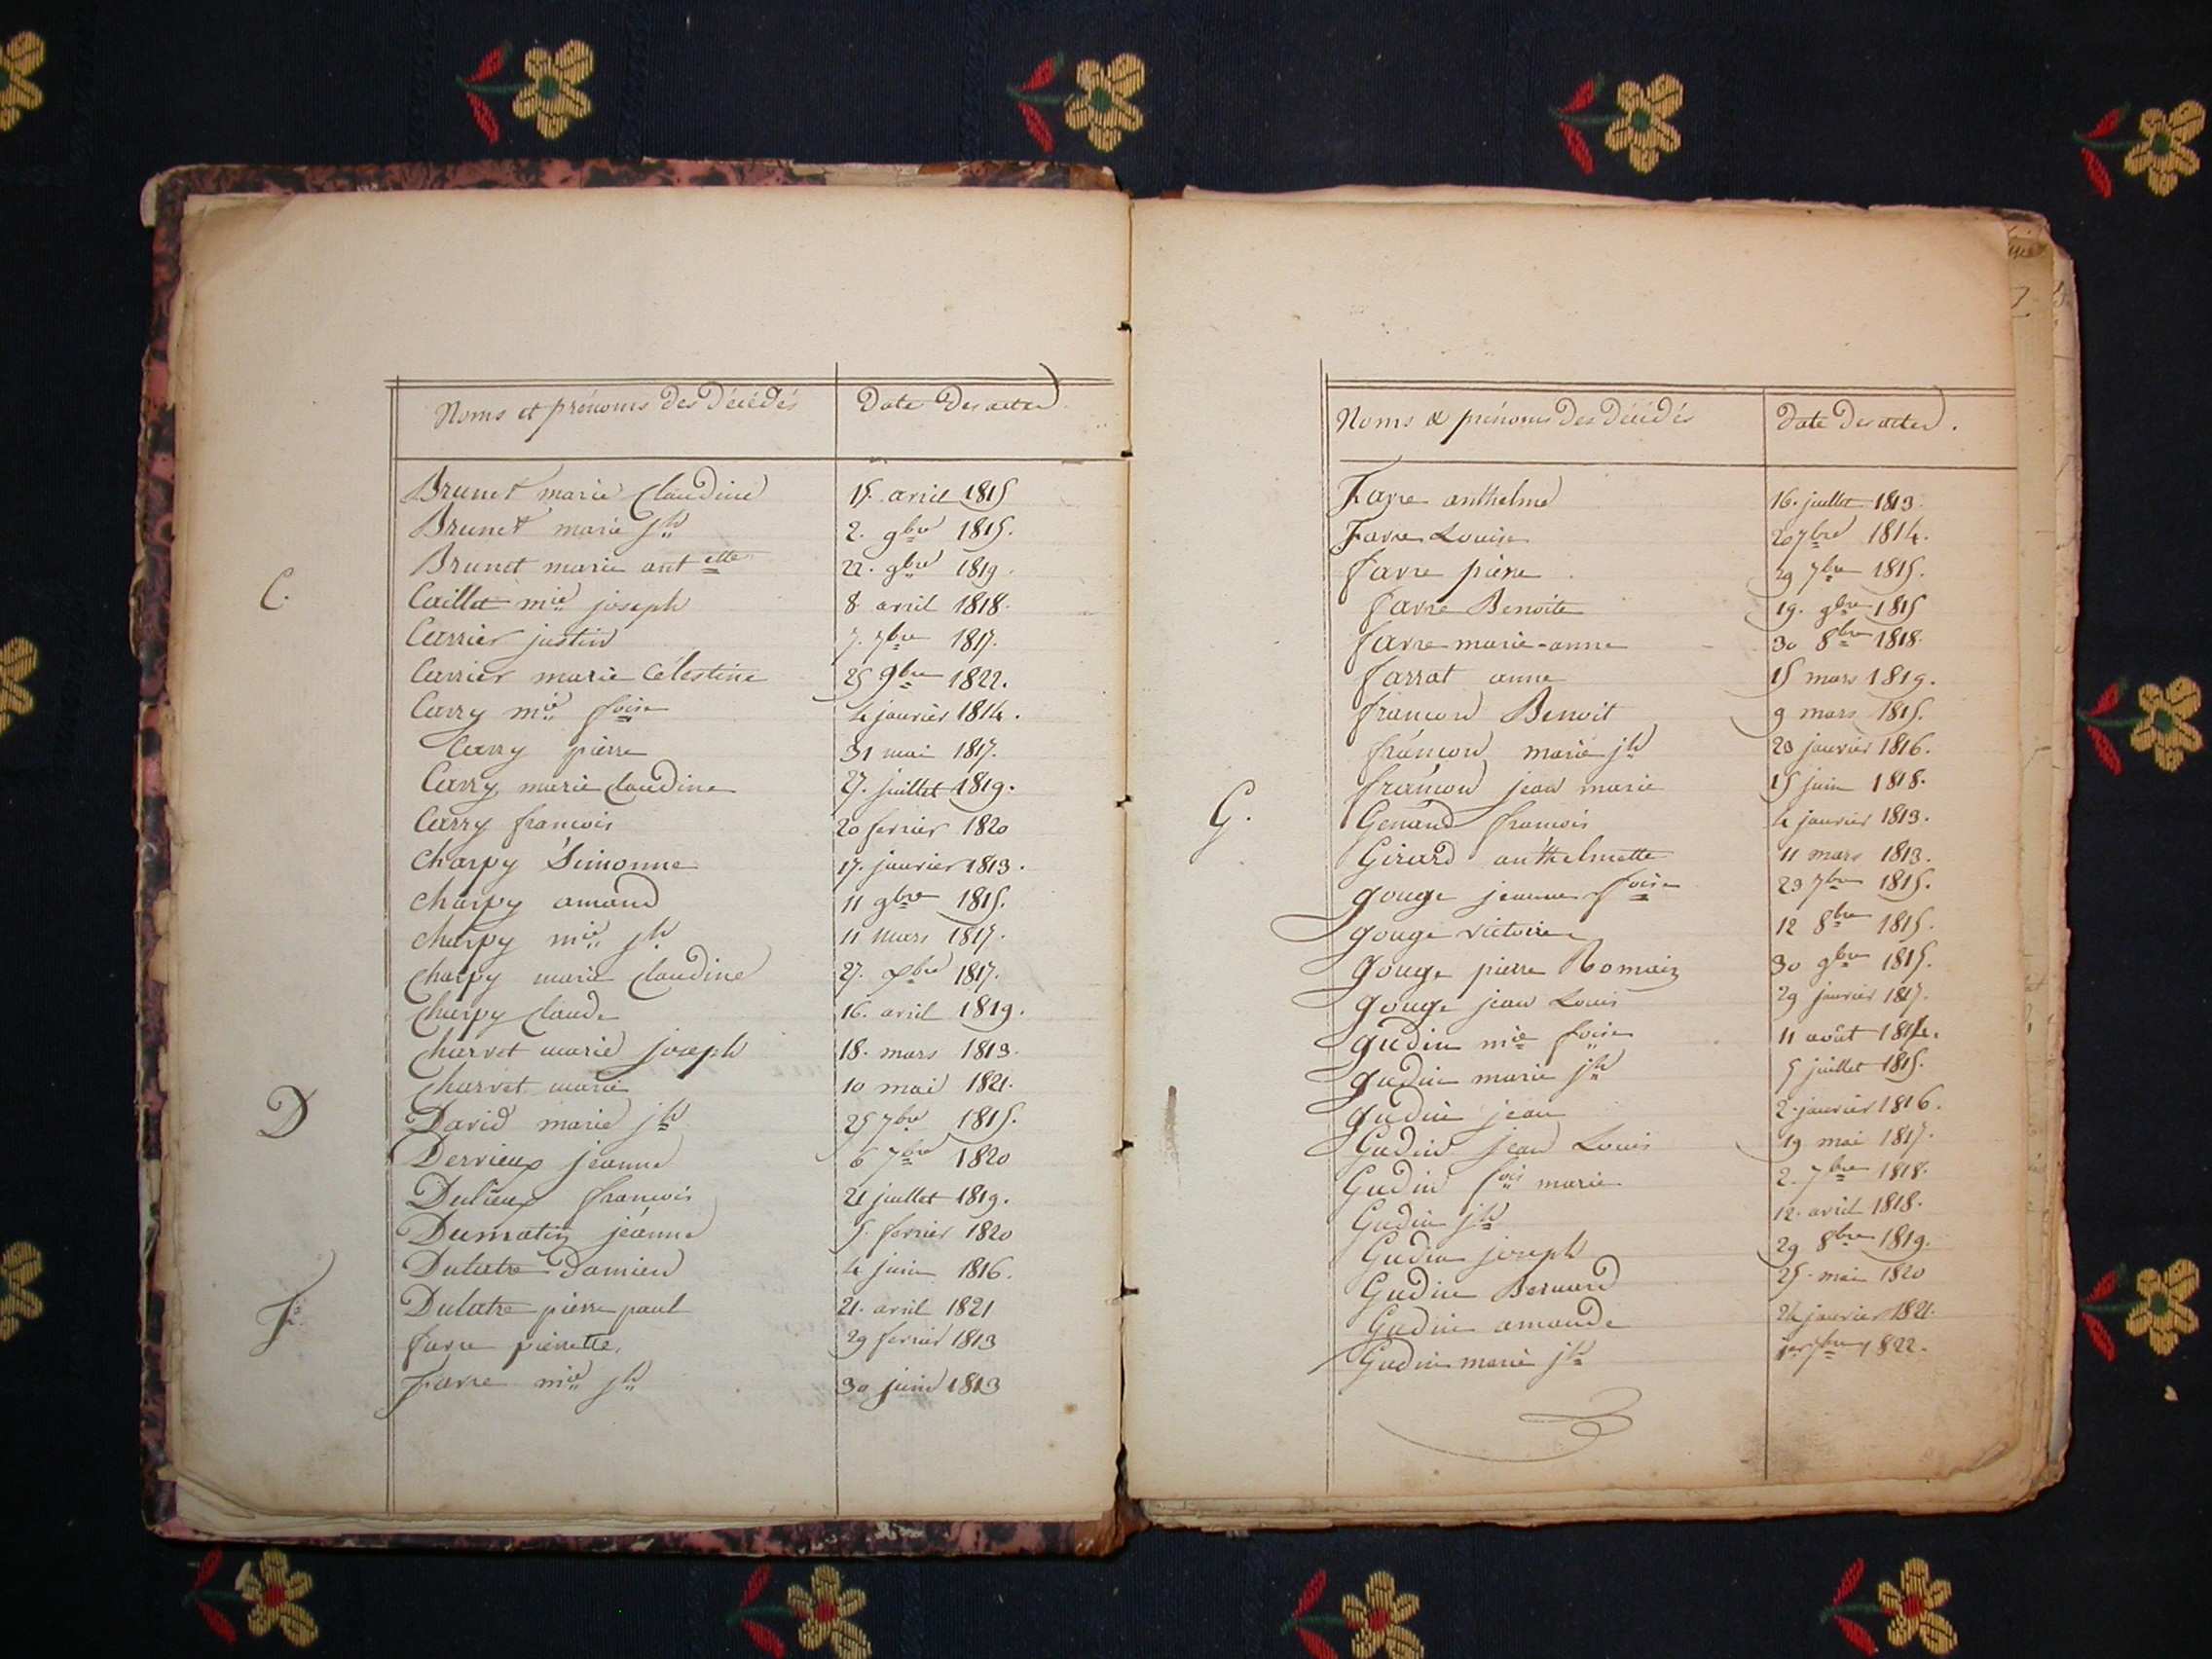 Noms et prénoms des décédés Date des actes
Brunet marie Claudine 15. avril 1815
Brunet marie jh 2. 9bre 1815.
Brunet marie antette 22. 9bre 1819.
C. Caillet mie joseph 8 avril 1818.
Carrier justin 7. 7bre 1817.
Carrier marie Célestine 25 9bre 1822.
Carry mie foise 4 janvier 1814.
Carry pierre 31 mai 1817.
Carry marie Claudine 27. juillet 1819.
Carry francois 20 fevrier 1820
Charpy Simonne 17. janvier 1813.
Charpy amand 11 9bre 1815.
Charpy mie jh 11 mars 1817.
Charpy marie Claudine 27. xbre 1817.
Charpy Claude 16. avril 1819.
Charvet marie joseph 18. mars 1813.
Charvet marie 10 mai 1821.
D David marie jh 25 7bre 1815.
Derrieux jeanne 6 7bre 1820
Dulieux francois 21 juillet 1819.
Dumatin jeanne 5. fevrier 1820
Dulatre Damien 4 juin 1816.
Dulatre pierre paul 21. avril 1821
F. favre pierrette, 29 fevrier 1813
Favre mie jh 30 juin 1813
Noms & prénoms des décédés Date des actes.
Favre anthelme 16. juillet 1813.
Favre Louise 20 7bre 1814.
favre pierre 29 7bre 1815.
favre Benoite 19. 9bre 1815
favre marie-anne 30 8bre 1818.
farrat anne 15 mars 1819.
francon Benoit 9 mars 1815.
francon marie jh 23 janvier 1816.
francon jean marie 15 juin 1818.
G. Genand francois 4 janvier 1813.
Girard anthelmette 11 mars 1813.
gouge jeanne foise 23 7bre 1815.
gouge victoire 12 8bre 1815.
gouge pierre Romain 30 9bre 1815.
gouge jean Louis 29 janvier 1817.
gudin mie foise 11 août 1814.
gudin marie jh 5 juillet 1815.
gudin jean 2. janvier 1816.
Gudin jean Louis 19 mai 1817.
Gudin fois marie 2. 7bre 1818.
Gudin jh 12. avril 1818.
Gudin joseph 29 8bre 1819.
Gudin Bernard 25. mai 1820
Gudin amande 24 janvier 1821.
Gudin marie jh 1er 7bre 1822.